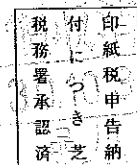 印紙税申告納
付につき芝
税務署承認済